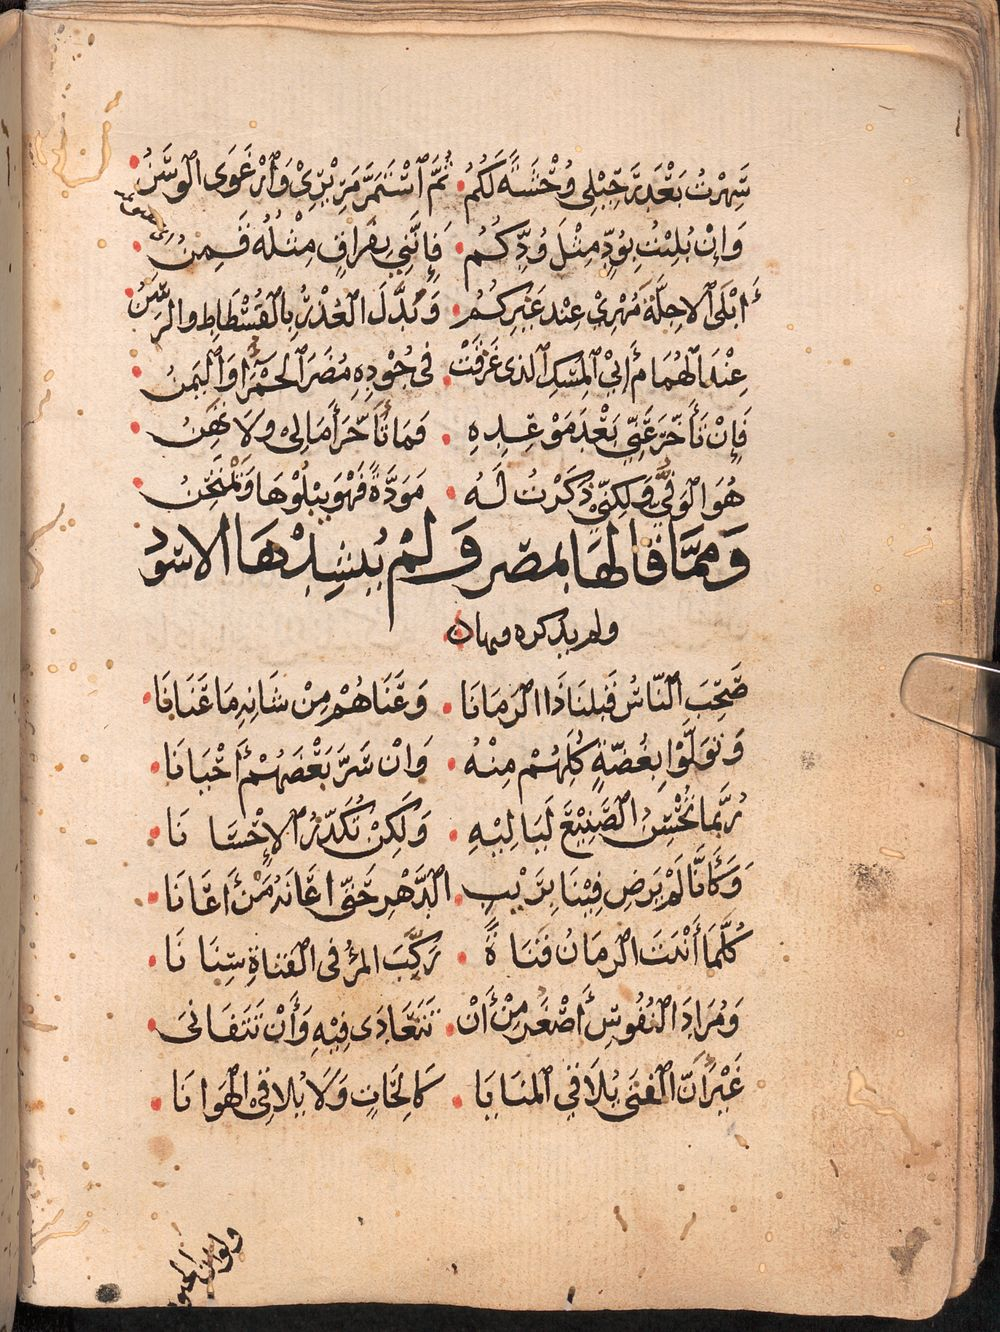 سَهِرْتُ بَعْدَ رَحِيْلِي وُحْشَةً لَكُمُ ثُمَّ ٱسْتَمَرَّ مَرِيْرِيْ وَٱرْعَوَى الوَسَنُ
وَاِنْ بُلِيْتُ بِوُدٍّ مِثْلَ وُدِّكُمُ فَاِنَّنِي بِفِرَاقٍ مِثْلُهُ قَمِنُ
أَبْلَى ٱلاجِلَّةَ مُهْرِيْ عِنْدَ غَيْرِكُمُ وَبُدِّلَ العُذْرُ بِالفُسْطَاطِ والرَّسَنُ
عِنْدَ الهُمَامِ أَبِيْ المِسْكِ ٱلذى غَرِقَتْ فى جُوْدِهِ مُضَرُ الحَمْرَآءِ وَاليَمَنُ
فَإِنْ تَأَخَّرَ عَنِّي بَعْدَ مَوْعِدِهِ فَمَا تَأَخَّرَ أَمَالِى وَلَا تَهِنُ
هُوَ الوَفِيُّ وَلكِنِّيْ ذَكَرْتُ لَهُ مَوَدَّةً فَهْوَ يَبْلُوْهَا وَيَمْتَحِنُ
وَمِمَّا قَالهَا بمصْر وَلَمْ يُنْشِدْهَا الاسْوَد
ولم يذكره فيها
صَحِبَ النَّاسُ قَبلَنَا ذَا الزمَانَا وَعَنَاهُمْ مِنْ شَانِهِ مَا عَنَانَا
وَتَوَلَّوْا بِغُصَّةٍ كُلُّهُمْ مِنْهُ وَاِنْ سَرَّ بَعْضَهُمْ أَحْيَانَا
رُبَّمَا تُحْسِنُ الصَّنِيْعَ لَيَالِيْهِ وَلَكِنْ تُكَدِّرُ الاِحْسَانَا
وَكَأَنَّا لَمْ يَرضَ فِيْنَا بِرَيْبِ الدَّهْرِ حَتَّى اعَانَهُ مَنْ أَعَانَا
كُلَّمَا أَنْبَتَ الزمَانُ قَنَاةً رَكَّبَ المرْءُ فى القَنَاةِ سِنَانَا
وَمُرَادُ النُفُوسِ أَصْغَرُ مِنْ أَنْ نَتَعَادَى فِيْهِ وَأَنْ نَتَفَانىَ
غَيْرَ أَنَّ الفَتىَ يُلاَقي المنَايَا كَالِحَاتٍ وَلَا يُلاقِى الهَوَانَا
ولو ان الحيوة